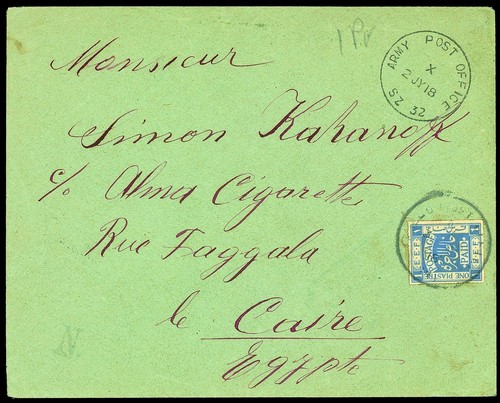 Monsieur
Simon Kahanoff
c/o Alma Cigarette
Rue Faggala
le Caire
Egypte
ARMY POST OFFICE
X
2 JY 18
SZ 32
E.E.F.
POSTAGE
PAID
ONE PIASTRE